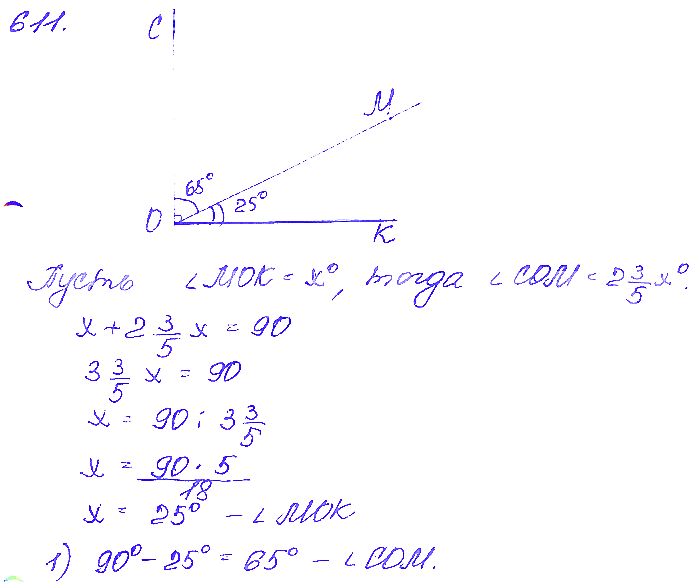 611.
C
M
65°
25°
O
K
Пусть ∠MOK = x°, тогда ∠COM = 2 3/5 x°.
x + 2 3/5 x = 90
3 3/5 x = 90
x = 90 : 3 3/5
x = 90 · 5 / 18
x = 25° – ∠MOK
1) 90° – 25° = 65° – ∠COM.